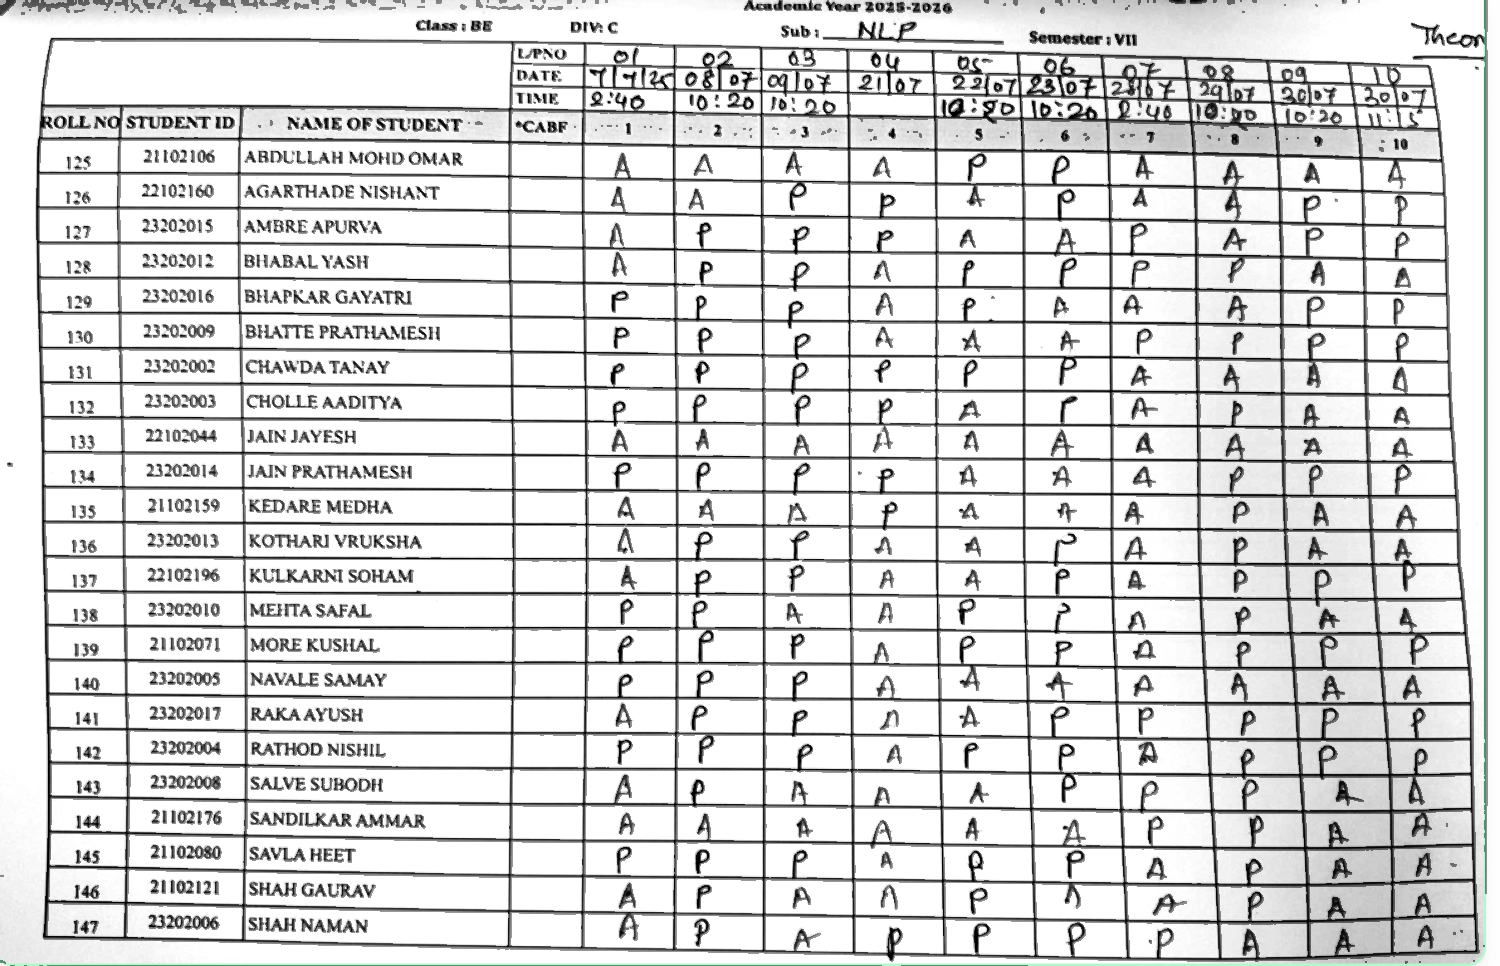 Academic Year 2025-2026
Class : BE DIV: C Sub : NLP Semester : VII Theor
L/PNO 01 02 03 04 05 06 07 08 09 10
DATE 7/7/25 08/07 09/07 21/07 22/07 23/07 28/07 29/07 30/07 30/07
TIME 2:40 10:20 10:20 10:20 10:20 2:40 10:20 11:15
ROLL NO STUDENT ID NAME OF STUDENT *CABF 1 2 3 4 5 6 7 8 9 10
125 21102106 ABDULLAH MOHD OMAR A A A A P P A A A A
126 22102160 AGARTHADE NISHANT A A P P A P A A P P
127 23202015 AMBRE APURVA A P P P A A P A P P
128 23202012 BHABAL YASH A P P A P P P P A A
129 23202016 BHAPKAR GAYATRI P P P A P A A A P P
130 23202009 BHATTE PRATHAMESH P P P A A A P P P P
131 23202002 CHAWDA TANAY P P P P P P A A A A
132 23202003 CHOLLE AADITYA P P P P A P A P A A
133 22102044 JAIN JAYESH A A A A A A A A A A
134 23202014 JAIN PRATHAMESH P P P P A A A P P P
135 21102159 KEDARE MEDHA A A A P A A A P A A
136 23202013 KOTHARI VRUKSHA A P P A A P A P A A
137 22102196 KULKARNI SOHAM A P P A A P A P P P
138 23202010 MEHTA SAFAL P P A A P P A P A A
139 21102071 MORE KUSHAL P P P A P P A P P P
140 23202005 NAVALE SAMAY P P P A A A A A A A
141 23202017 RAKA AYUSH A P P A A P P P P P
142 23202004 RATHOD NISHIL P P P A P P A P P P
143 23202008 SALVE SUBODH A P A A A P P P A A
144 21102176 SANDILKAR AMMAR A A A A A A P P A A
145 21102080 SAVLA HEET P P P A P P A P A A
146 21102121 SHAH GAURAV A P A A P A A P A A
147 23202006 SHAH NAMAN A P A P P P P A A A